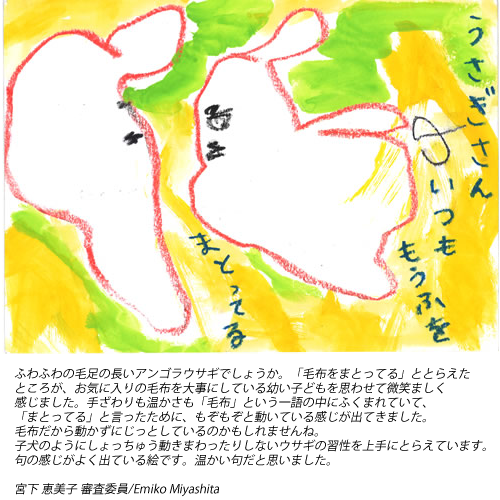 うさぎさん
いつも
もうふを
まとってる
ふわふわの毛足の長いアンゴラウサギでしょうか。「毛布をまとってる」ととらえた
ところが、お気に入りの毛布を大事にしている幼い子どもを思わせて微笑ましく
感じました。手ざわりも温かさも「毛布」という一語の中にふくまれていて、
「まとってる」と言ったために、もぞもぞと動いている感じが出てきました。
毛布だから動かずにじっとしているのかもしれませんね。
子犬のようにしょっちゅう動きまわったりしないウサギの習性を上手にとらえています。
句の感じがよく出ている絵です。温かい句だと思いました。
宮下 恵美子 審査委員/Emiko Miyashita